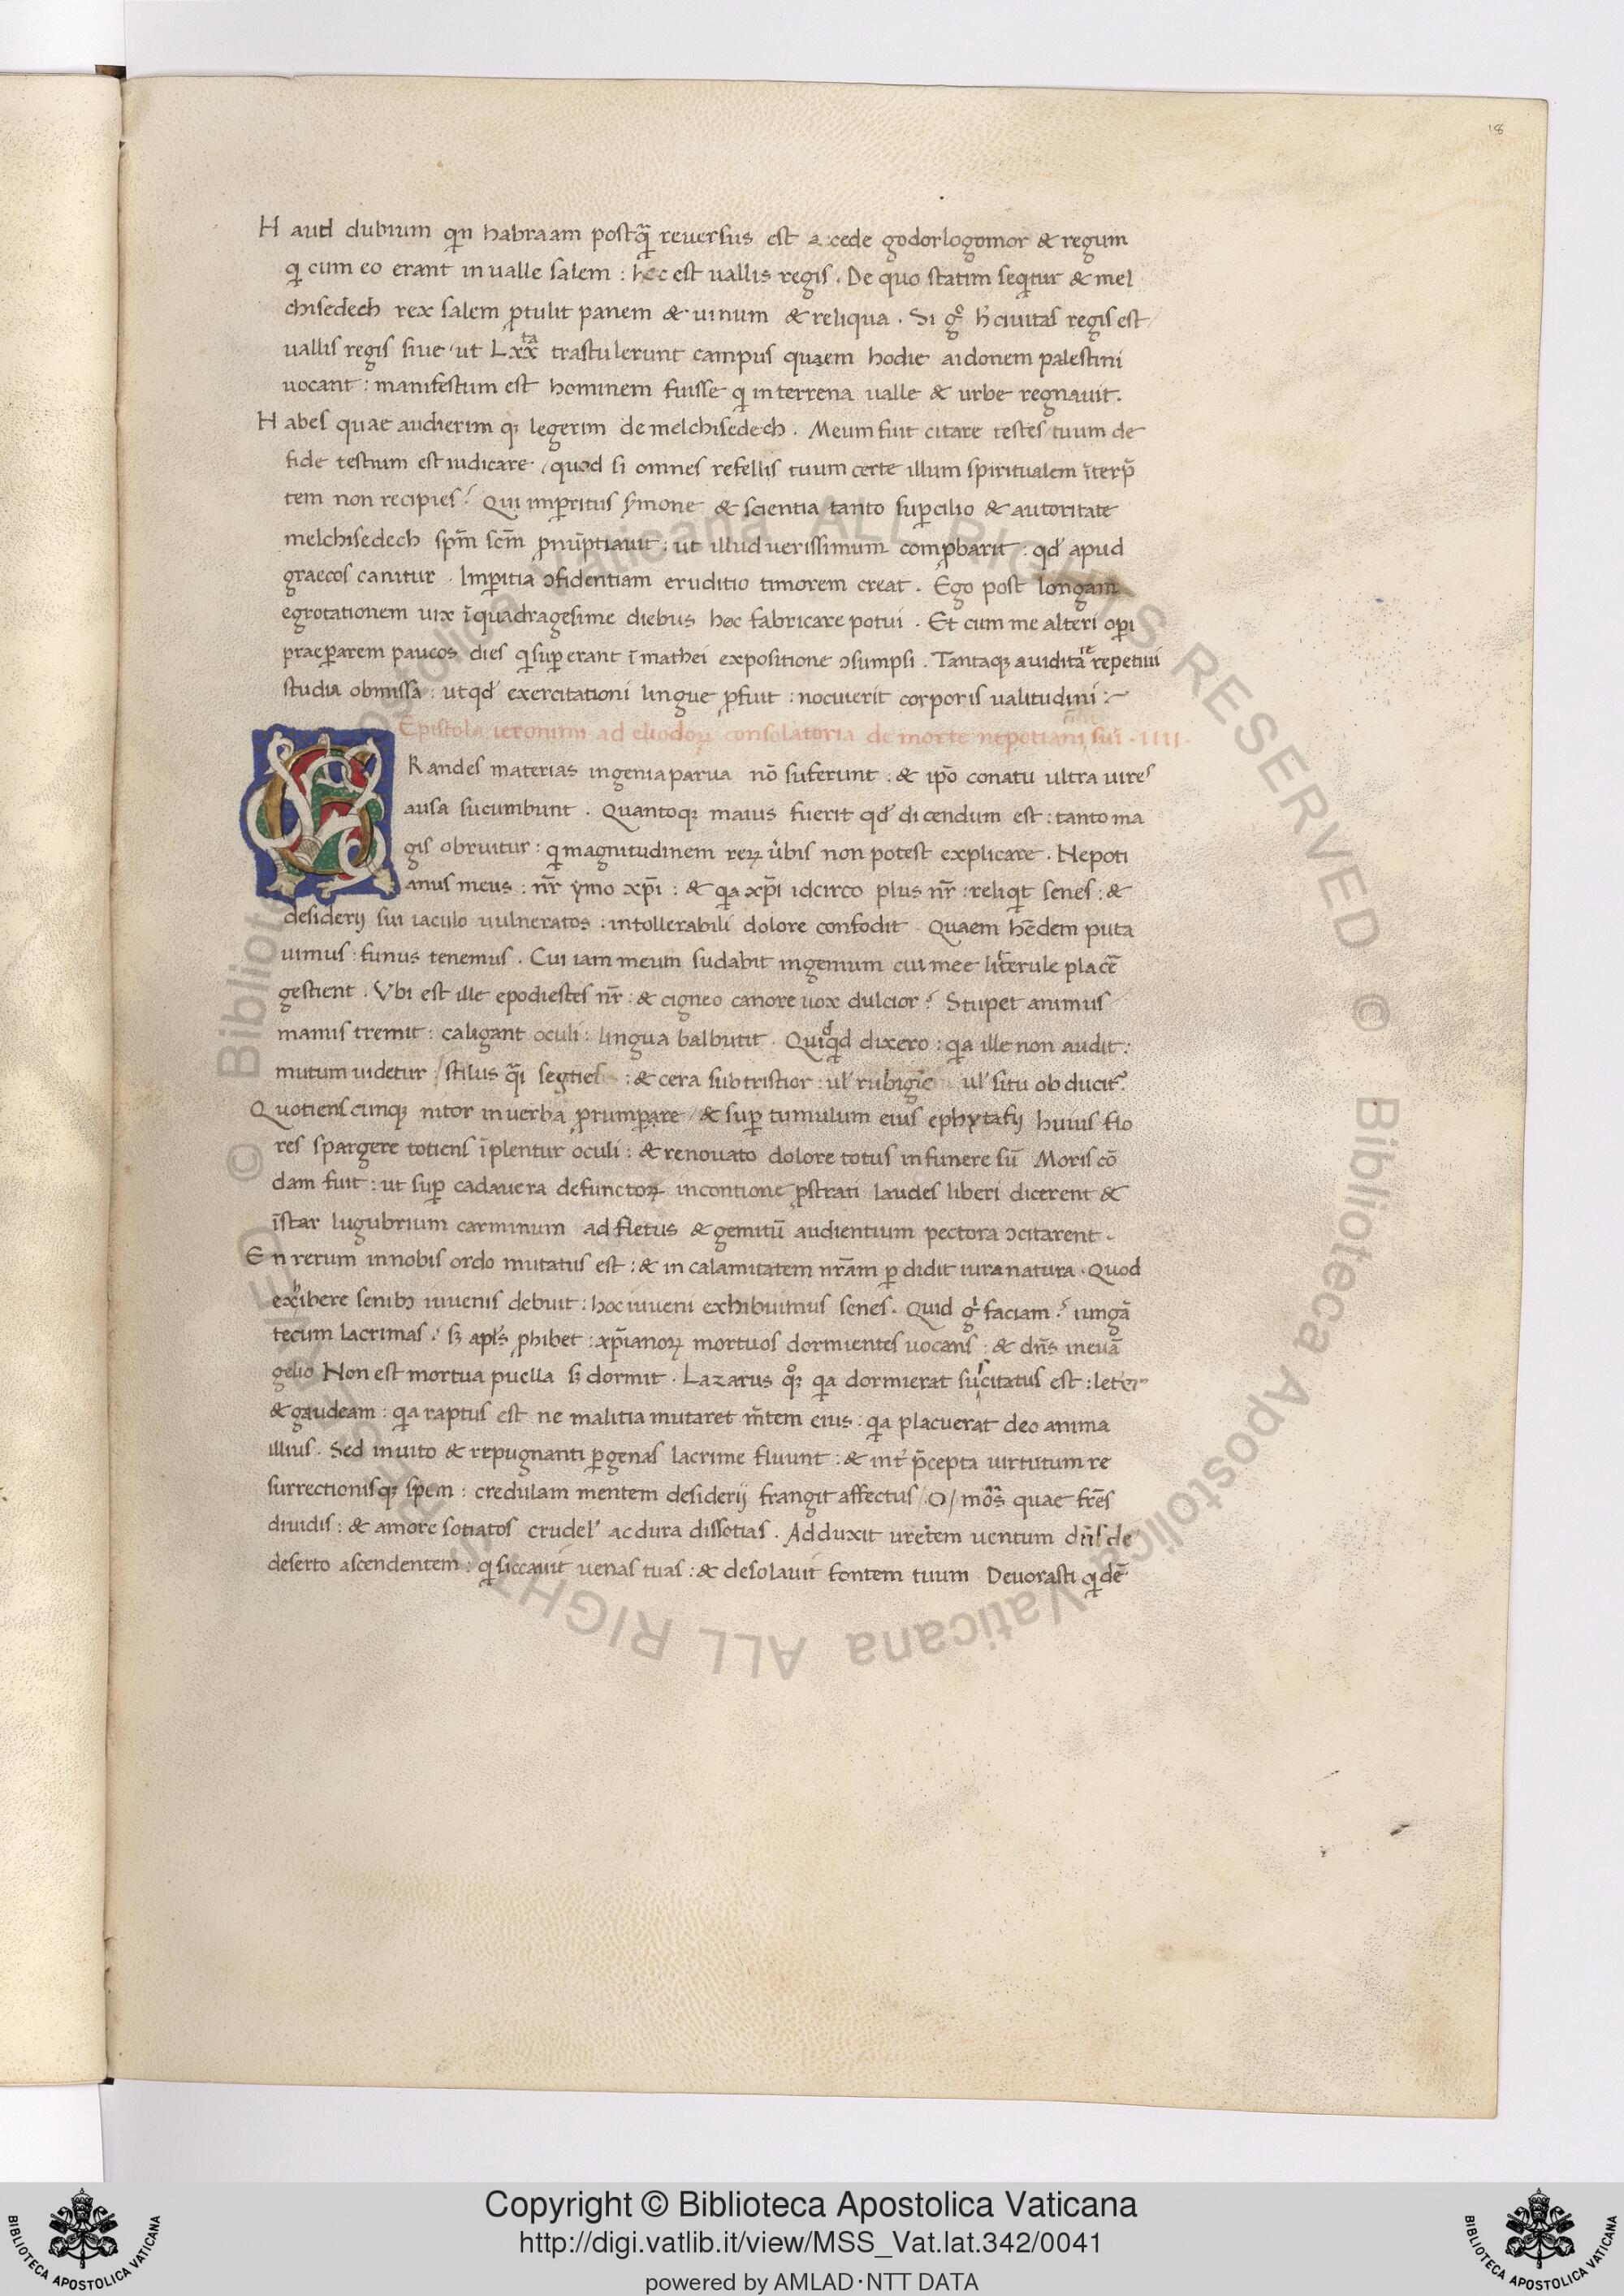 18
Haud dubium qͥn habraam postq̃ reuersus est a cede godorlogomor & regum
qͥ cum eo erant in ualle salem : hec est uallis regis . De quo statim seqͥtur & mel
chisedech rex salem ꝓtulit panem & uinum & reliqua . Si gͦ h̄ ciuitas regis est /
uallis regis siue / ut Lxxᵗᵃ trastulerunt campus quaem hodie aidonem palestini
uocant : manifestum est hominem fuisse qͥ in terrena ualle & urbe regnauit .
Habes quae audierim qꝫ legerim de melchisedech . Meum fuit citare testes / tuum de
fide testium est iudicare / quod si omnes refellis tuum certe illum spiritualem ĩterp̃
tem non recipies ? Qui imꝑitus s̃mone & scientia / tanto suꝑcilio & autoritate
melchisedech sp̃m sc̃m ꝓnũptiauit : ut illud uerissimum comꝓbarit : qđ apud
graecos canitur . Imꝑitia ↄfidentiam eruditio timorem creat . Ego post longam
egrotationem uix ĩ quadragesime diebus hoc fabricare potui . Et cum me alteri oꝑi
praeꝑarem paucos dies qͥ suꝑerant ĩ mathei expositione ↄsumpsi . Tantaqꝫ auiditaᵗᵉ repetiui
studia obmissa : ut qđ exercitationi lingue ꝓfuit : nocuierit corporis ualitudini :~
Epistola ieronimi ad eliodoꝝ consolatoria de morte nepotiani sui . IIII .
GRandes materias ingenia parua nõ suferunt : & ip̃o conatu ultra uires
ausa sucumbunt . Quantoqꝫ maius fuerit qđ dicendum est : tanto ma
gis obruitur : qͥ magnitudinem reꝝ u̇bis non potest explicare . Nepoti
anus meus : nr̃ ymo xp̃i : & qͥa xp̃i idcirco plus nr̃ : reliqͥt senes : &
desiderij sui iaculo uulneratos : intollerabili dolore confodit . Quaem hẽdem puta
uimus : funus tenemus . Cui iam meum sudabit ingenium cui mee litterule placẽ
gestient . Vbi est ille epodiestes nr̃ : & cigneo canore uox dulcior ? Stupet animus
manus tremit : caligant oculi : lingua balbutit . Quiqͥd dixero : qͥa ille non audit :
mutum uidetur / stilus q̃i segties : & cera subtristior : ul' rubigĩe ul' situ obducitᷣ.
Quotienscunqꝫ nitor in uerba ꝓrumꝑare / & suꝑ tumulum eius ephytafij huius flo
res spargere totiens ĩplentur oculi : & renouato dolore totus in funere sũ Moris cõ
dam fuit : ut suꝑ cadauera defunctoꝝ in contione ꝓstrati laudes liberi dicerent &
ĩstar lugubrium carminum ad fletus & gemitũ audientium pectora ↄcitarent .
En rerum in nobis ordo mutatus est : & in calamitatem nr̃am ꝑdidit iura natura . Quod
exʰibere senibꝫ iuuenis debuit : hoc iuueni exhibuimus senes . Quid gͥ faciam ? iungã
tecum lacrimas ? sꝫ apl's ꝓhibet : xp̃ianoꝝ mortuos dormientes uocans : & dñs in euã
gelio Non est mortua puella sꝫ dormit . Lazarus qͦꝫ qͥa dormierat suˢcitatus est : leter
& gaudeam : qͥa raptus est ne malitia mutaret m̃tem eius : qͥa placuerat deo anima
illius . Sed inuito & repugnanti ꝑ genas lacrime fluunt : & int̾ p̃cepta uirtutum re
surrectionisqꝫ spem : credulam mentem desiderij frangit affectus / O / mõrs quae fr̃es
diuidis : & amore sotiatos crudel' ac dura dissotias . Adduxit uretem uentum dñs de
deserto ascendentem : qͥ siccauit uenas tuas : & desolauit fontem tuum Deuorasti qͥdẽ
© Biblioteca Apostolica Vaticana ALL RIGHTS RESERVED © Biblioteca Apostolica Vaticana ALL RIGHTS RESERVED
Copyright © Biblioteca Apostolica Vaticana
http://digi.vatlib.it/view/MSS_Vat.lat.342/0041
powered by AMLAD·NTT DATA
BIBLIOTECA APOSTOLICA VATICANA
BIBLIOTECA APOSTOLICA VATICANA